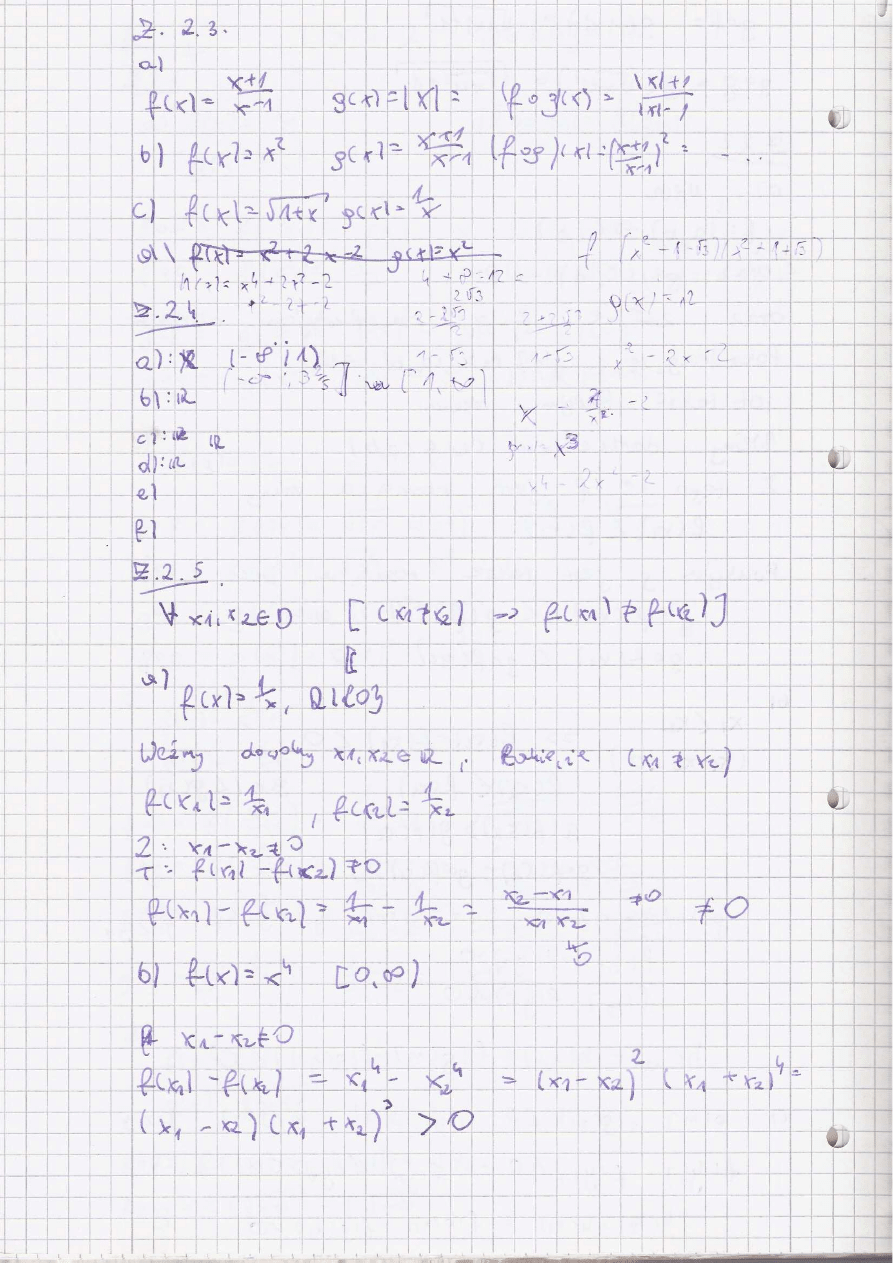 Z. 2.3.
a)
f(x) = \frac{x+1}{x-1} g(x) = |x| = (f o g)(x) = \frac{|x|+1}{|x|-1}
b) f(x) = x^2 g(x) = \frac{x+1}{x-1} (f o g)(x) = (\frac{x+1}{x-1})^2 = - ...
c) f(x) = \sqrt{1+x} g(x) = \frac{1}{x}
d) f(x) = x^2 + 2x - 2 g(x) = x^2
h(x) = x^4 + 2x^2 - 2
4 + 8 = 12 =
2\sqrt{3}
g(x) = 12
Z.2.4
a): (-∞; 1)
1-\sqrt{3} 1-\sqrt{3} x^2 - 2x - 2
b): R
c): R R
d): R
x^3
e)
x^4 - 2x -2
f)
Z.2.5
∀ x1, x2 ∈ D [(x1 ≠ x2) => f(x1) ≠ f(x2)]
a) f(x) = \frac{1}{x}, R\{0}
Weźmy dowolny x1, x2 ∈ R, takie, że (x1 ≠ x2)
f(x1) = \frac{1}{x1}, f(x2) = \frac{1}{x2}
Z: x1 - x2 ≠ 0
T: f(x1) - f(x2) ≠ 0
f(x1) - f(x2) = \frac{1}{x1} - \frac{1}{x2} = \frac{x2 - x1}{x1 x2} ≠0 ≠ 0
≠ 0
b) f(x) = x^4 [0, ∞)
x1 - x2 ≠ 0
f(x1) - f(x2) = x1^4 - x2^4 = (x1 - x2)^2 (x1 + x2)^4 =
(x1 - x2)(x1 + x2)^3 > 0